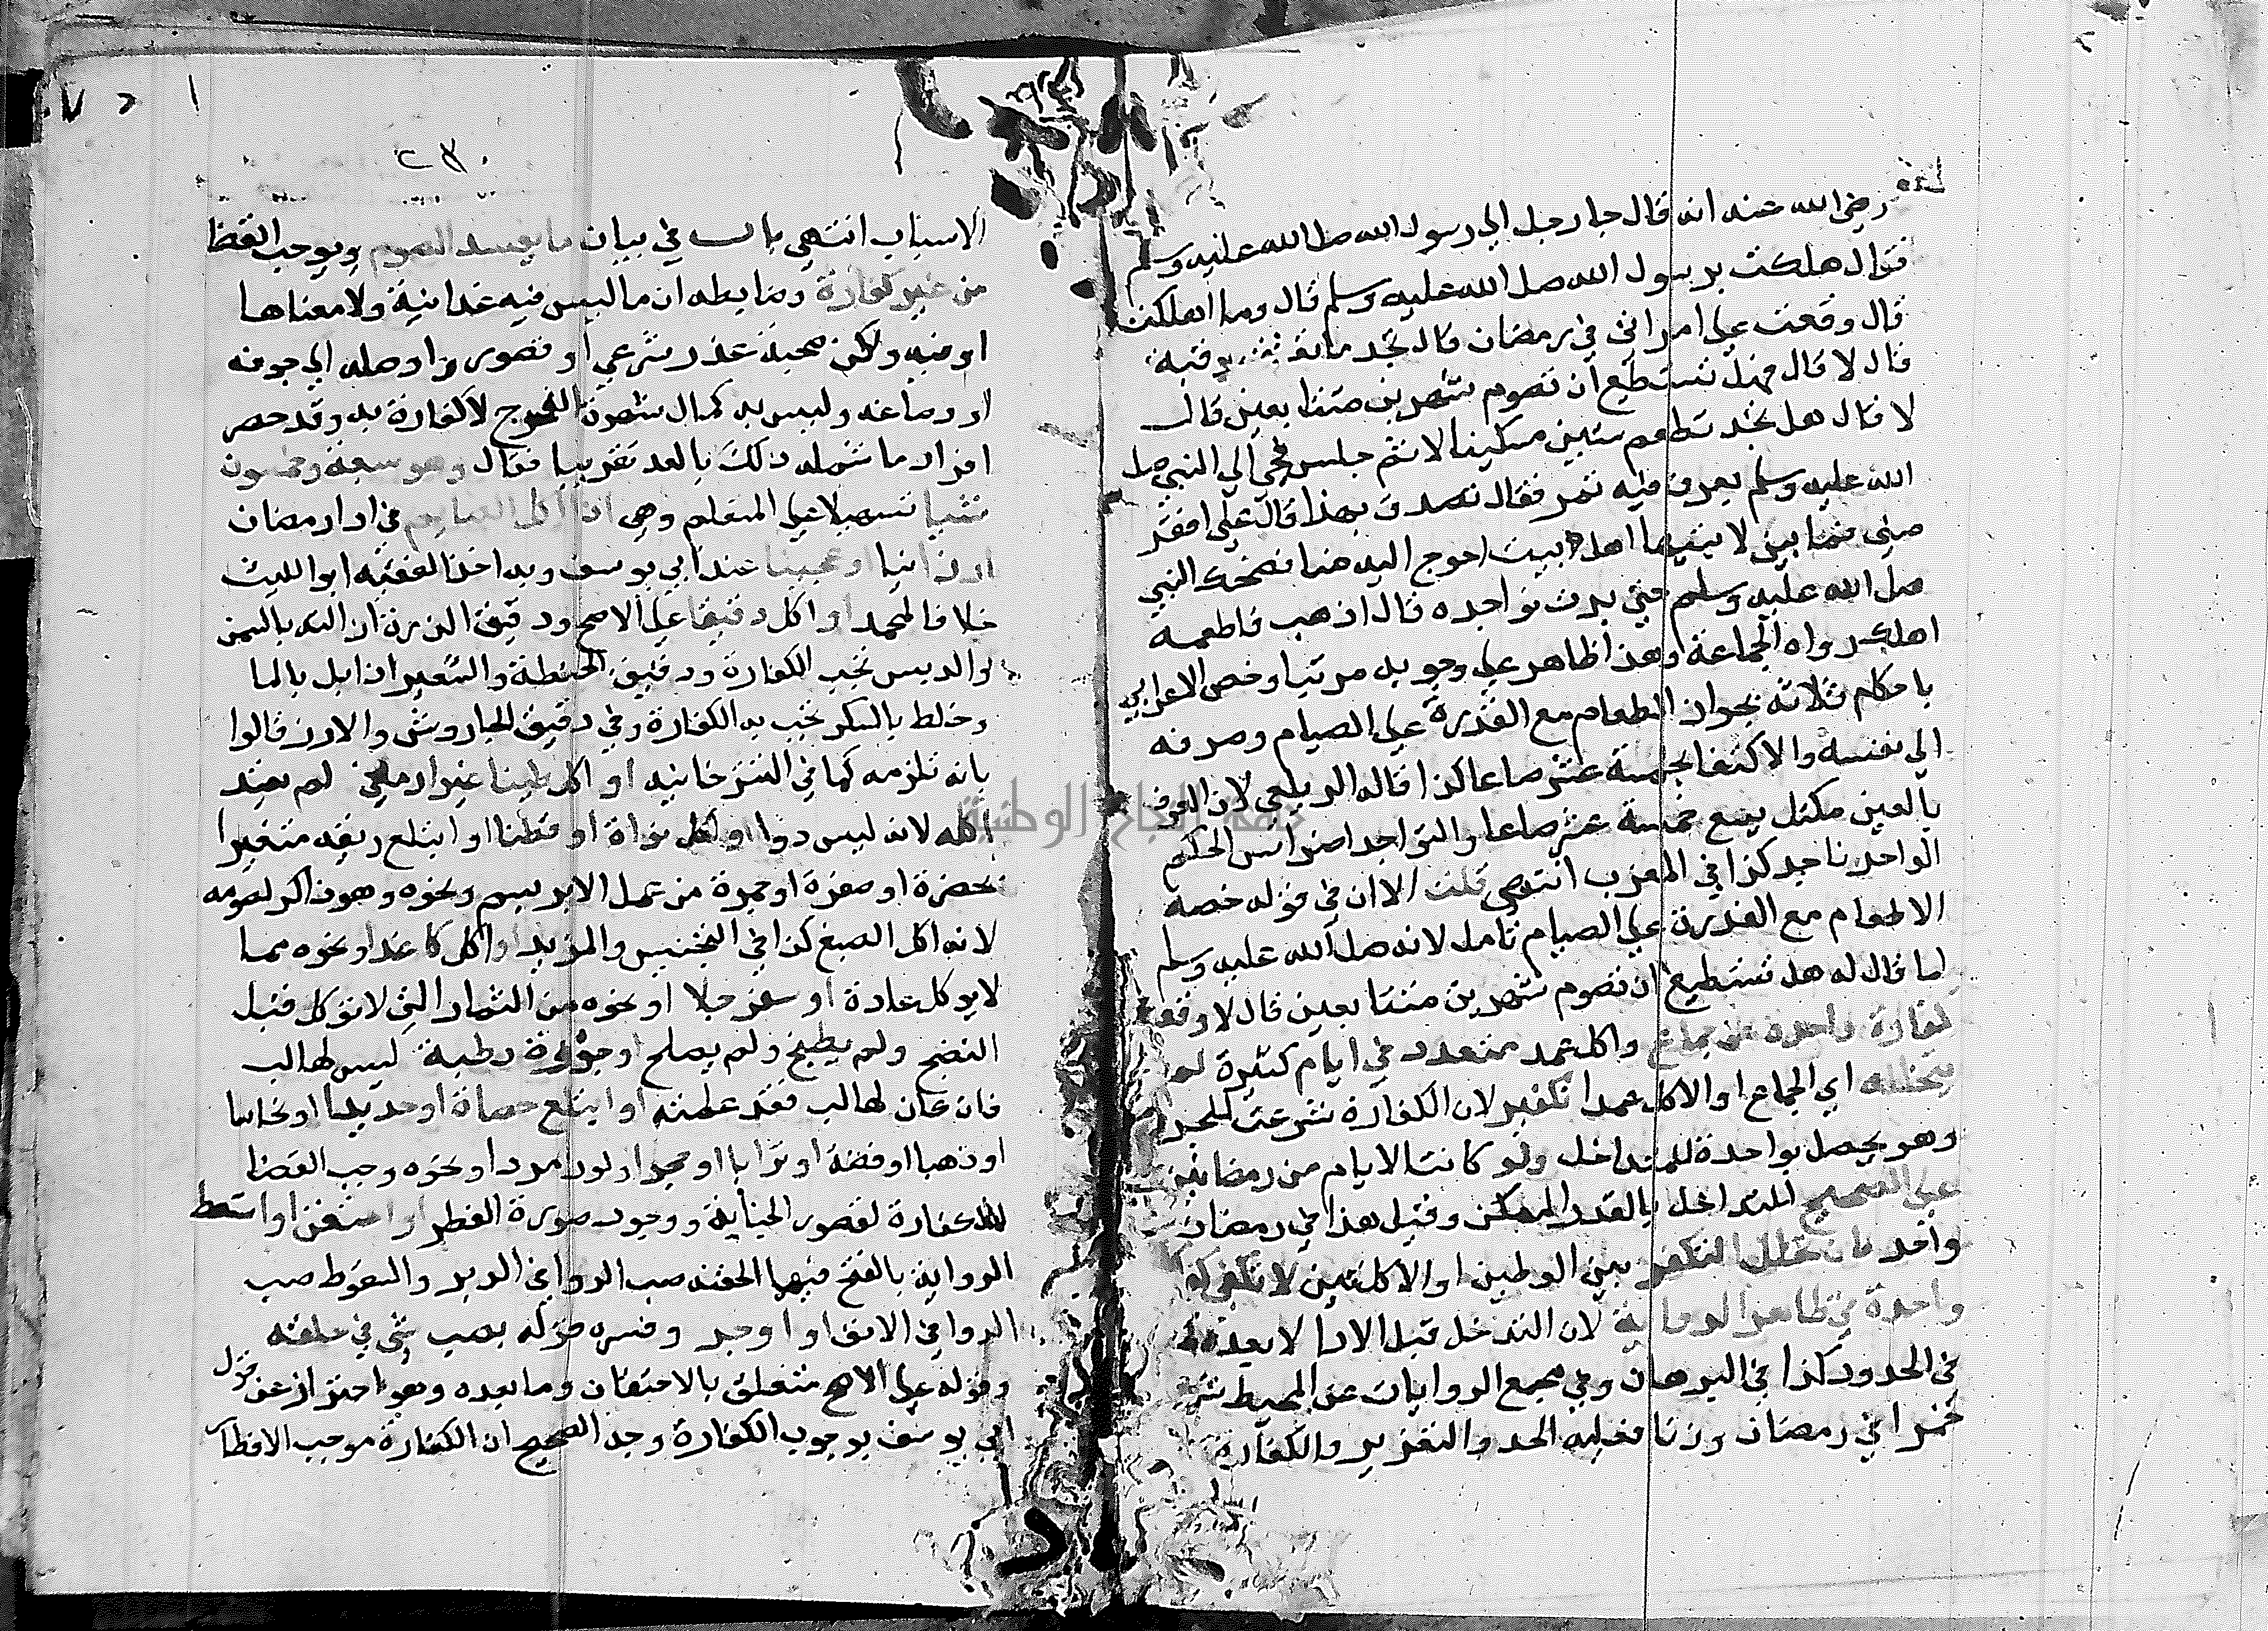 رضي الله عنه انه قال جا رجل الي رسول الله صلي الله عليه وسلم
فقال هلكت يرسول الله صلي الله عليه وسلم قال وما اهلكت
قال وقعت علي امراتي في رمضان قال تجد ما تعتق رقبة
قال لا قال فهل تستطيع ان تصوم شهرين متتابعين قال
لا قال هل تجد تطعم ستين مسكينا لا ثم جلس فجي الي النبي صلي
الله عليه وسلم بعرق فيه تمر فقال تصدق بهذا قال علي افقر
مني فما بين لابتيها اهل بيت احوج اليه منا فضحك النبي
صلي الله عليه وسلم حتي بدت نواجده قال اذهب فاطعمه
اهلك رواه الجماعة وهذا ظاهر علي وجوبه مرتبا وخص الاعرابي
باحكام ثلاثة بجواز الطعام مع القدرة علي الصيام وصرفه
الي نفسه والاكتفا بخمسة عشر صاعا كذا قاله الزيلعي لان العرق
بالعين مكتل يسع خمسة عشر صاعا والنواجد اضراس الحكم
الواحد ناجد كذا في المغرب انتهي قلت الا ان في قوله خصه
الاطعام مع القدرة علي الصيام تامل لانه صلي الله عليه وسلم
لما قال له هل تستطيع ان تصوم شهرين متتابعين قال لا وكفت
كفارة واحدة عن جماع واكل عمد متعدد في ايام كثيرة لم
يتخلله اي الجماع او الاكل عمدا تكفير لان الكفارة شرعت للجبر
وهو يحصل بواحدة للتداخل ولو كانت الايام من رمضانين
علي الصحيح للتداخل بالقدر الممكن وقيل هذا في رمضان
واحد فان تخلل التكفير بين الوطين او الاكلتين لا تكفي
واحدة في ظاهر الرواية لان التدخل قبل الادا لا بعده
في الحدود كذا في البرهان وفي مجمع الروايات عن المحيط شرب
خمرا في رمضان وزنا فعليه الحد والتعزير والكفارة
٢٧٠
الاسباب انتهي باب في بيان ما يفسد الصوم ويوجب القضا
من غير كفارة وضابطه ان ما ليس فيه غدائية ولا معناها
او فيه ولكن صحبه عذر شرعي او قصور او صله الي جوفه
او دماغه وليس به كمال شهوة الفرج لا كفارة به وقد حصر
افراد ما شمله ذلك بالعد تقريبا فقال وهو سبعة وخمسون
شيا تسهيلا علي المتعلم وهي اذا اكل الصايم في ادا رمضان
ارزا نيا او عجينا عند ابي يوسف وبه اخذ الفقيه ابو الليث
خلافا لمحمد او اكل دقيقا علي الاصح ودقيق الذرة ان لته بالسمن
والدبس تجب الكفارة ودقيق الحنطة والشعير ان ابل بالما
وخلط بالسكر تجب به الكفارة وفي دقيق الجاروش والارز قالوا
بانه تلزمه كما في التترخانيه او اكل طينا غير ارمني لم يعتد
اكله لانه ليس دوا او اكل نواة او قطنا او ابتلع ريقه متغيرا
بخضرة او صفرة او حمرة من عمل الابريسم ونحوه وهو ذاكر لصومه
لانه اكل الصبغ كذا في التجنيس والمزيد او اكل كاغدا ونحوه مما
لا يوكل عادة او سفرجلا او نحوه من الثمار التي لا توكل قبل
النضج ولم يطبخ ولم يملح او جوزة رطبة ليس لها لب
فان كان لها لب فقد علمته او ابتلع حصاة او حديدا او نحاسا
او ذهبا او فضة او ترابا او حجرا ولو زمردا ونحوه وجب القضا
لا الكفارة لقصور الجناية ووجود صورة الفطر او احتقن او استعط
الرواية بالفتح فيهما الحقنه صب الدوا في الدبر والسعوط صب
الدوا في الانف او اوجر وفسره قوله بصب شي في حلقه
وقوله علي الاصح متعلق بالاحتقان وما بعده وهو احتراز عن قول
ابي يوسف بوجوب الكفارة وجه الصحيح ان الكفارة موجب الافطار